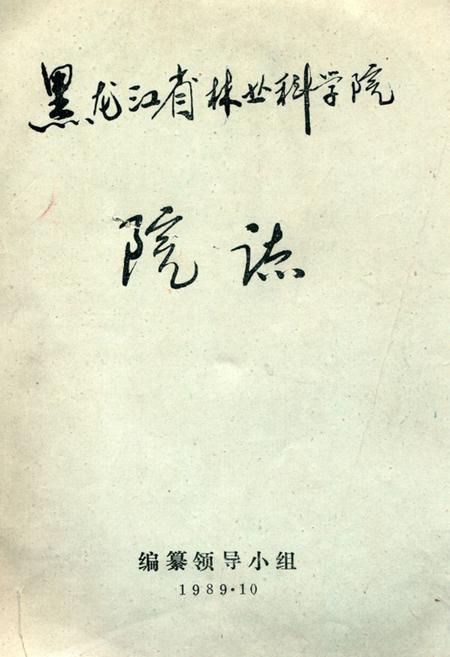 黑龙江省林业科学院
院誌
编纂领导小组
1989·10